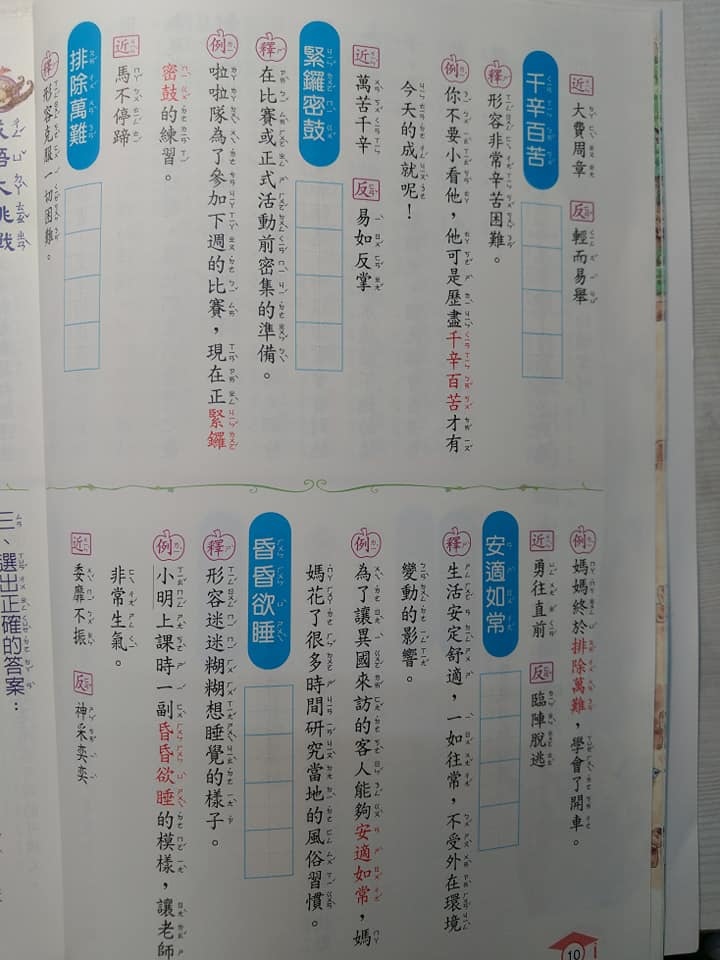 近 大費周章 反 輕而易舉
千辛百苦
釋 形容非常辛苦困難。
例 你不要小看他,他可是歷盡千辛百苦才有
今天的成就呢!
近 萬苦千辛 反 易如反掌
緊鑼密鼓
釋 在比賽或正式活動前密集的準備。
例 啦啦隊為了參加下週的比賽,現在正緊鑼
密鼓的練習。
近 馬不停蹄
排除萬難
釋 形容克服一切困難。
例 媽媽終於排除萬難,學會了開車。
近 勇往直前 反 臨陣脫逃
安適如常
釋 生活安定舒適,一如往常,不受外在環境
變動的影響。
例 為了讓異國來訪的客人能夠安適如常,媽
媽花了很多時間研究當地的風俗習慣。
昏昏欲睡
釋 形容迷迷糊糊想睡覺的樣子。
例 小明上課時一副昏昏欲睡的模樣,讓老師
非常生氣。
近 委靡不振 反 神采奕奕
10
語大挑戰
三、選出正確的答案: